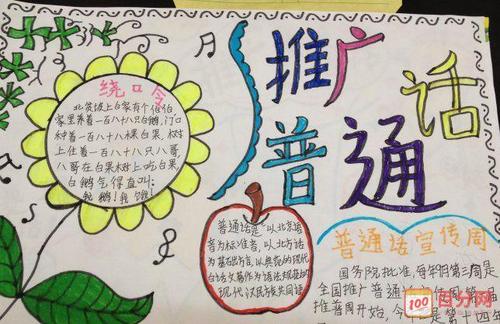 推广
普通
话
绕口令
北贫坡上白家有个伯伯
家里养着一百八十八只白鹅,门口
种着一百八十八棵白果,树
上住着一百八十八只八哥,
八哥在白果树上吃白果,
白鹅气得直叫:
我鹅!我饿!
普通话是"以北京语
音为标准音,以北方话
为基础方言,以典范的现代
白话文著作为语法规范的
现代汉民族共同语
普通话宣传周
国务院批准,每年9月第三周是
全国推广普通
推普周开始,今
是第十四
100
百分网